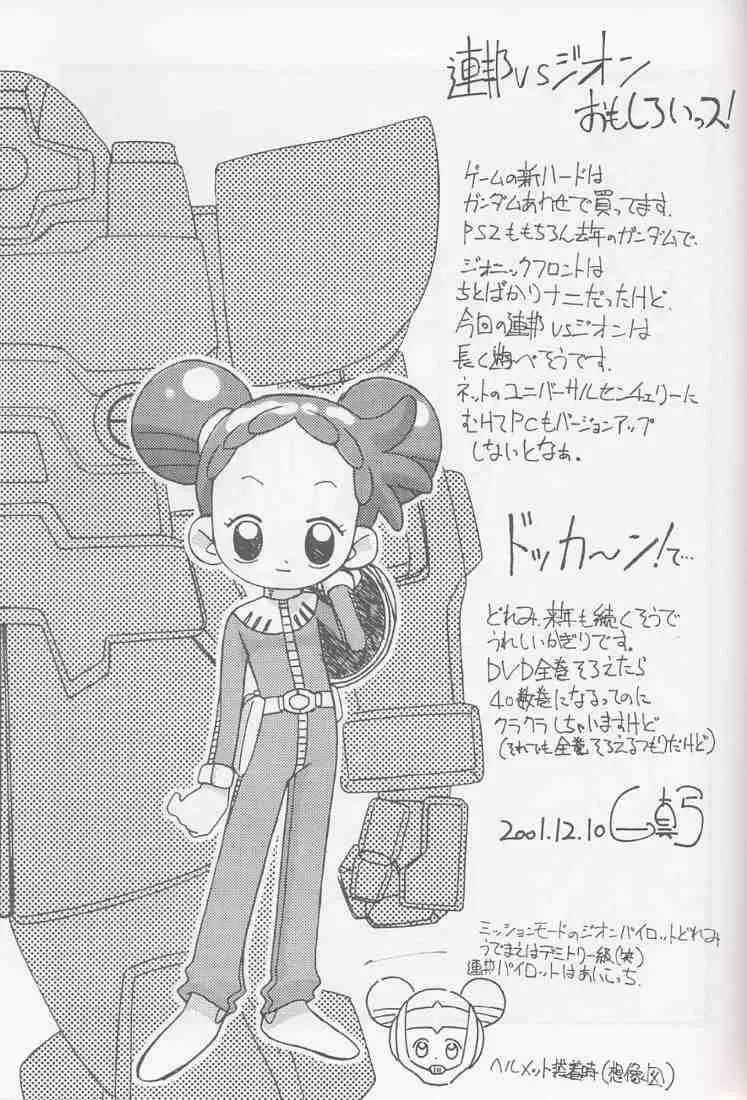 連邦VSジオン
おもしろいっス!
ゲームの新ハードは
ガンダムあわせで買ってます.
PS2ももちろん去年のガンダムで.
ジオニックフロントは
ちとばかりナニだったけど.
今回の連邦VSジオンは
長く遊べそうです.
ネットのユニバーサルセンチェリーに
むけてPCもバージョンアップ
しないとなぁ.
ドッカ〜ン!て…
どれみ、来年も続くそうで
うれしいかぎりです。
DVD全巻そろえたら
40数巻になるってのに
クラクラしちゃいますけど
(それでも全巻そろえるつもりだけど)
2001.12.10
ミッションモードのジオンパイロットどれみ
うでまえはデミトリー級(笑)
連邦パイロットはあいこっち.
ヘルメット装着時(想像図)